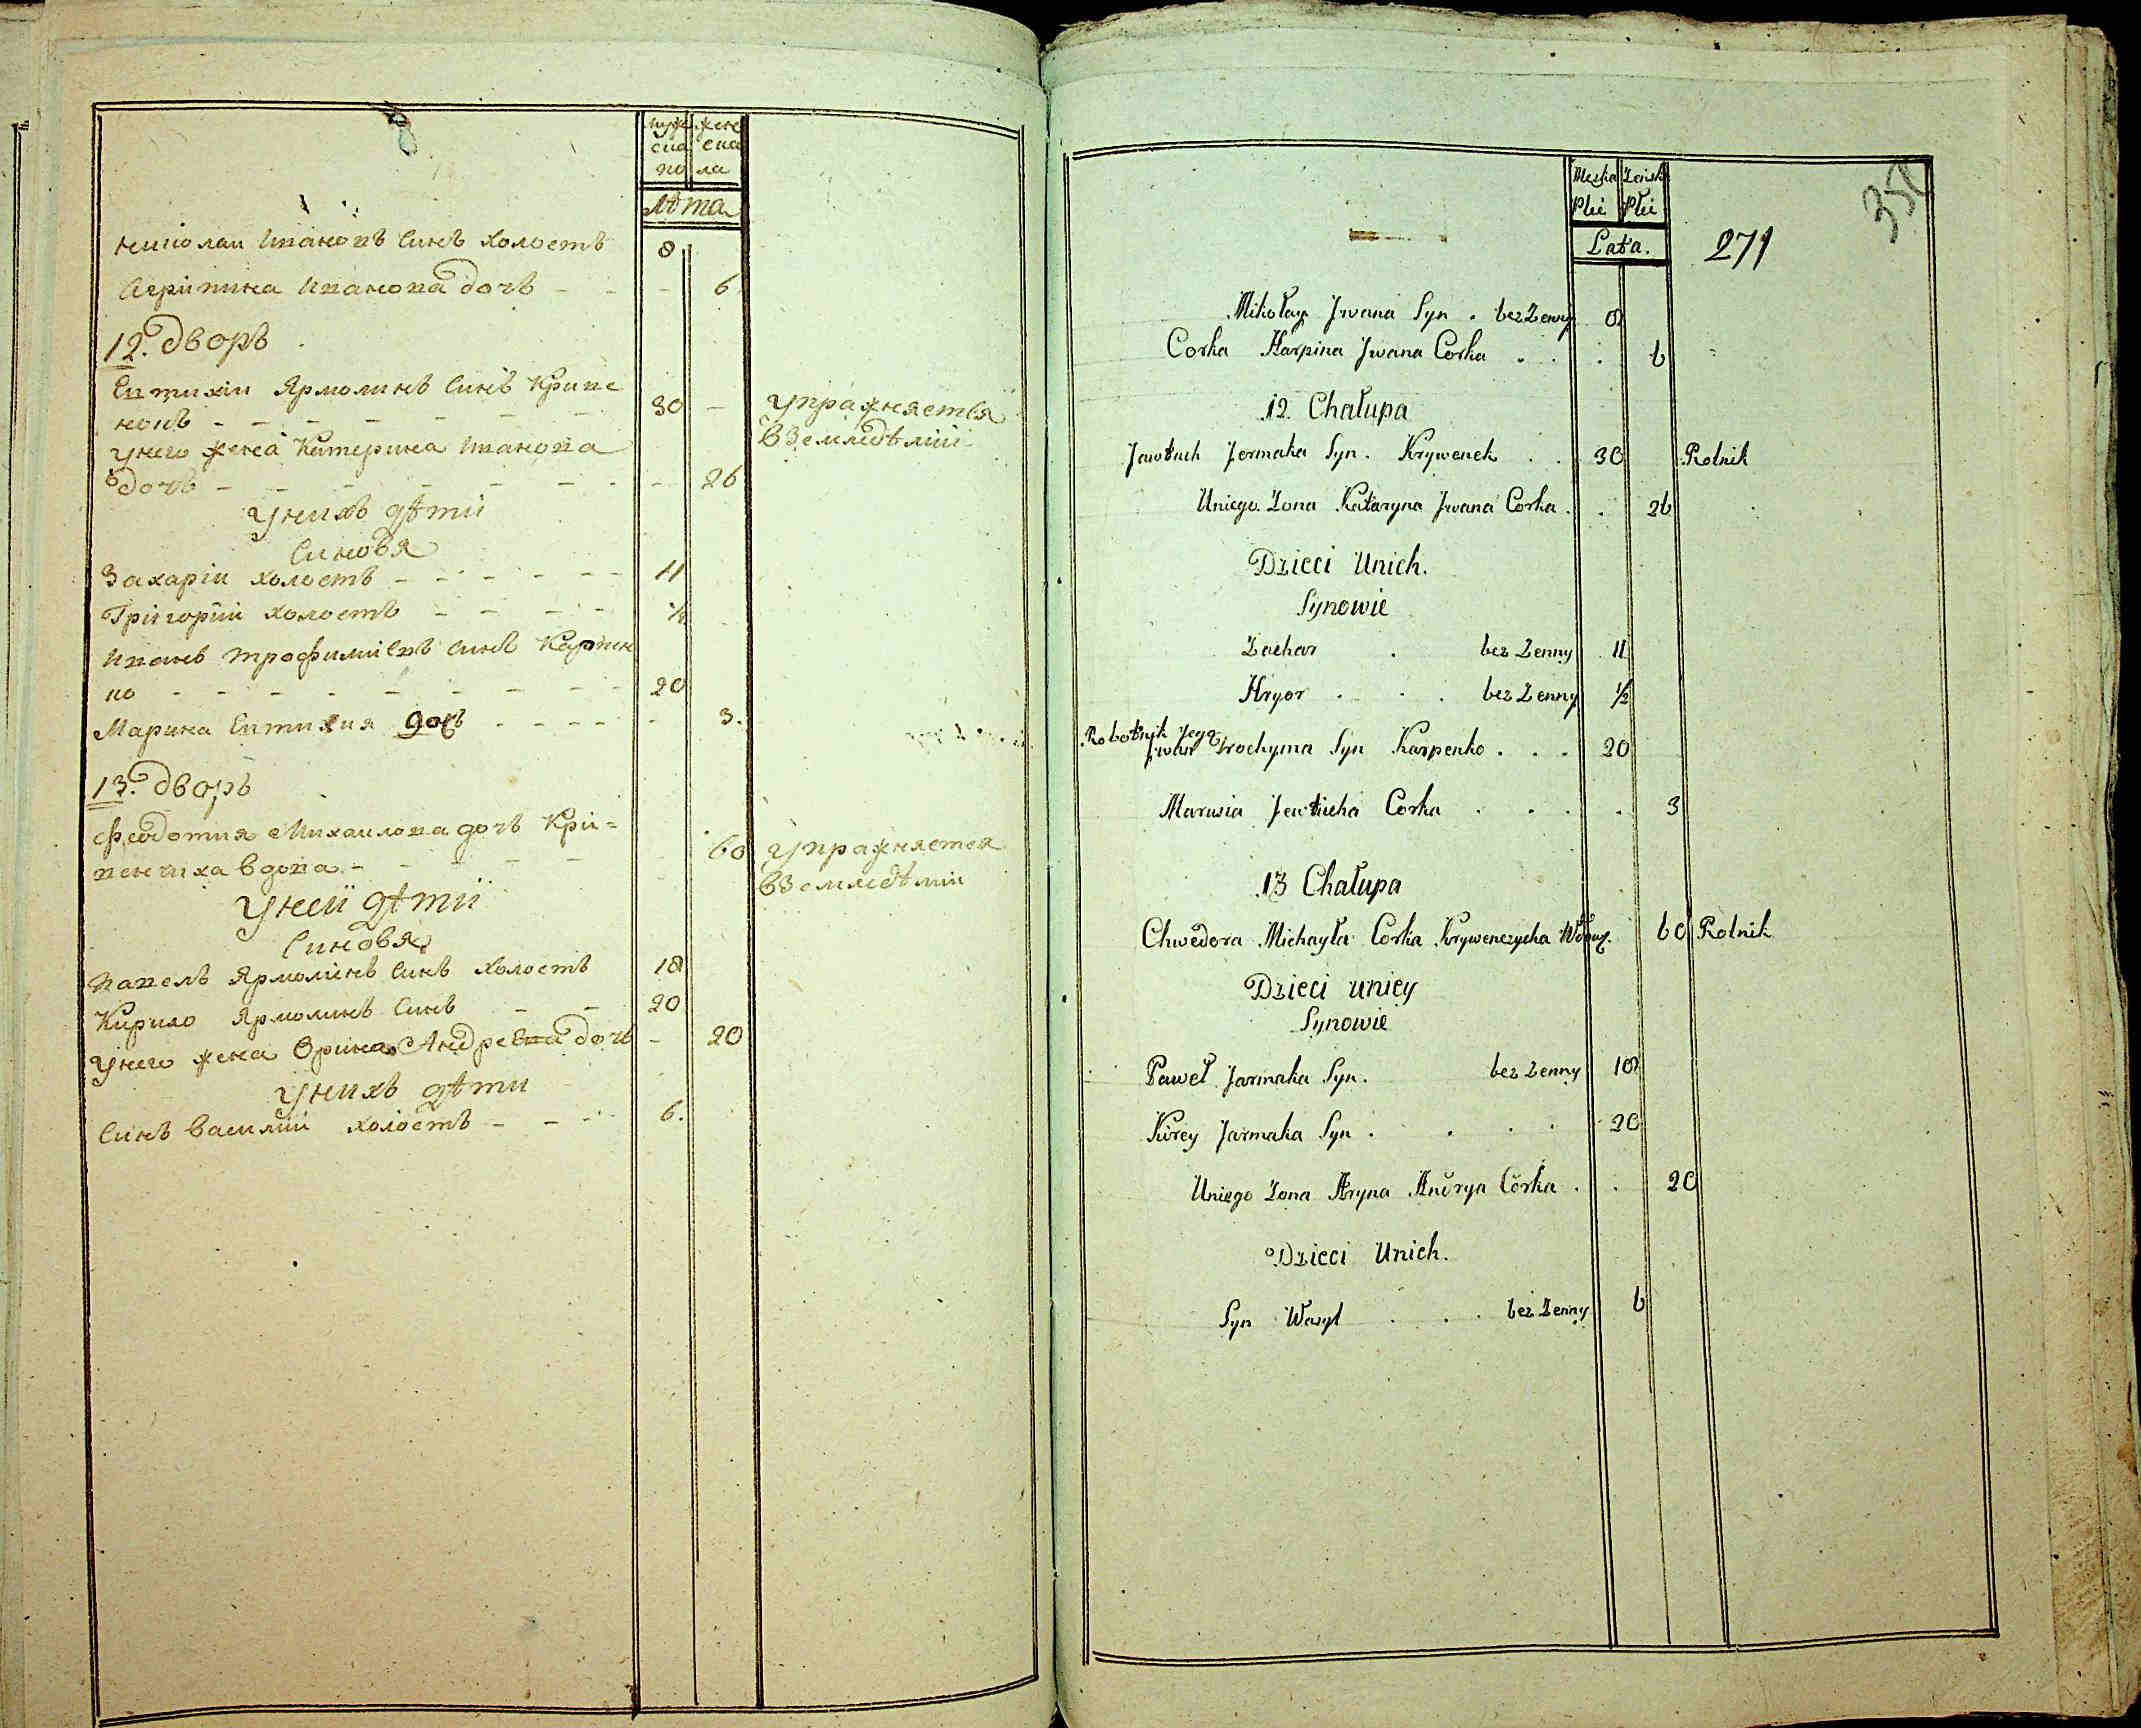 муже жене
ска ска
по ла
лѣта
николаи Ивановъ Синъ холостъ 8
Агрипина Иванова дочь 6
12. дворъ
Евтихіи Ярмолинъ Синъ Криве
нокъ 30 упражняется
в Земледѣліи
у него жена Катерина Иванова
дочь 26
У нихъ дѣти
Синовя
Захаріи холостъ 11
Григорій холостъ ½
Иванъ трофимовъ Синъ Карпен
ко 20
Марина Евтихия дочь 3.
13. дворъ
Феодотия Михаилова дочь Кри=
венчиха вдова 60 упражняется
в Земледѣліи
У неи дѣти
Синовя
Павелъ Ярмолинъ Синъ холостъ 18
Кирило Ярмолинъ Синъ 20
У него жена Орина Андреева дочь 20
У нихъ дѣти
Синъ Василій холостъ 6.
350
Męska Żeńska
Płci Płci
Lata.
271
Mikołay Jwana Syn. bez Żenny 8
Corka Harpina Jwana Corka 6
12. Chałupa
Jawtuch Jermaka Syn. Krywenek 30 Rolnik
Uniego Żona Kataryna Jwana Corka. 26
Dzieci Unich.
Synowie
Zachar bez Żenny 11
Hryor bez Żenny ½
Robotnik Jego
Jwan Trochyma Syn Karpenko 20
Marusia Jewtucha Corka 3
13 Chałupa
Chwedora Michayła Corka Krywenczycha Wdowa. 60 Rolnik
Dzieci uniey
Synowie
Paweł Jarmaka Syn. bez Żenny 18
Kirey Jarmaka Syn. 20
Uniego Żona Aryna Andryn Córka. 20
Dzieci Unich.
Syn Wasyl bez Żenny 6